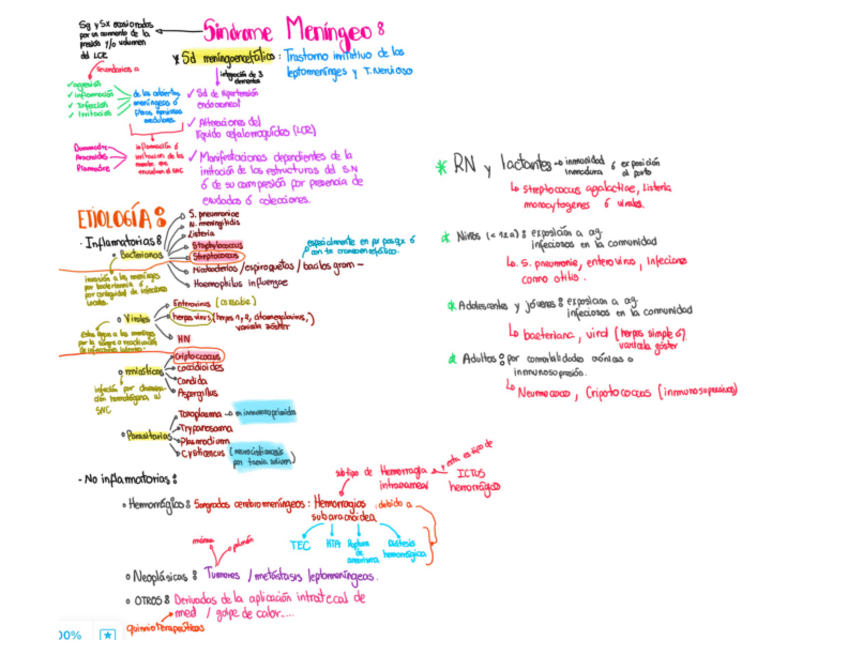 Sg y Sx ocasionados
por un aumento de la
presión y/o volumen
del LCR
Síndrome Meníngeo :
* Sd meningoencefálico : Trastorno irritativo de las
leptomeninges y T. Nervioso
secundarios a
integración de 3
elementos
✓ agresión
✓ inflamación
✓ Infección
✓ Irritación
de las cubiertas
meníngeas ó
medulares
✓ Sd de hipertensión
endocraneal
✓ Alteraciones del
líquido cefalorraquídeo (LCR)
Duramadre
Aracnoides
Piamadre
inflamación ó
irritación de las
que
envuelven el SNC
✓ Manifestaciones dependientes de la
irritación de las estructuras del S.N
ó de su compresión por presencia de
exudados ó colecciones.
* RN y lactantes → inmunidad ó exposición
inmadura al parto
↳ streptococcus agalactiae, Listeria
monocytogenes ó virales.
ETIOLOGÍA :
· Inflamatorias :
• Bacterianas
S. pneumoniae
N. meningitidis
Listeria
Staphylococcus
Streptococcus
Micobacterias / espiroquetas / bacilos gram -
Haemophilus influenzae
especialmente en px posqx ó
con tx craneoencefálico.
invasión a las meninges
por bacteriemia ó
por contigüidad de infecciones
locales.
* Niños (< 12a) : exposición a ag.
infecciosos en la comunidad
↳ S. pneumonie, enterovirus, infecciones
como otitis.
• Virales
Entovirus (coxsakie)
herpes virus (herpes 1, 2, citomegalovirus,)
varicela zóster
HN
* Adolescentes y jóvenes : exposición a ag.
infecciosos en la comunidad
↳ bacteriana, viral (herpes simple ó)
varicela zóster
• micóticas
Criptococcus
Coccidioides
Candida
Aspergillus
infección por
hematógena al
SNC
* Adultos : por comorbilidades crónicas o
inmunosupresión.
↳ Neumococo, Criptococcus (inmunosupresivos)
• Parasitarias
Toxoplasma → en inmunosuprimidos
Trypanosoma
Plasmodium
Cysticercus (neurocisticercosis
por taenia solium)
· No inflamatorias :
subtipo de Hemorragia
intracraneal
esta es tipo de
ICTUS
hemorrágico
• Hemorrágicos : Sangrados cerebromeníngeos : Hemorragias
subaracnoidea
debido a
TEC
HTA
Ruptura
de
aneurisma
Diátesis
hemorrágica
mama
pulmón
• Neoplásicas : Tumores / metástasis leptomeníngeas.
• OTROS : Derivados de la aplicación intratecal de
med / golpe de calor....
quimioterapéuticos
00%